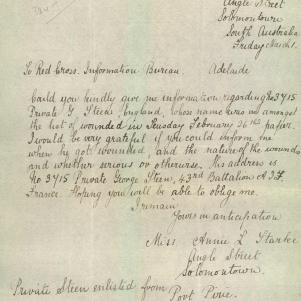 Angle Street
Solomontown
South Australia
Friday March 1.
To Red Cross. Information Bureau. Adelaide
Could you kindly give me information regarding No 3715
Private G Steen, England, whose name was no amongst
the list of wounded in Tuesday February 26ths paper.
I would be very grateful if you could inform me
when he got wounded and the nature of the wounds
and whether serious or otherwise. His address is
No 3715 Private George Steen, 43rd Battalion A.I.F
France Hoping you will be able to oblige me.
I remain
Yours in anticipation
Miss Annie L Starke
Angle Street
Solomontown.
Private Steen enlisted from
Port Pirie.